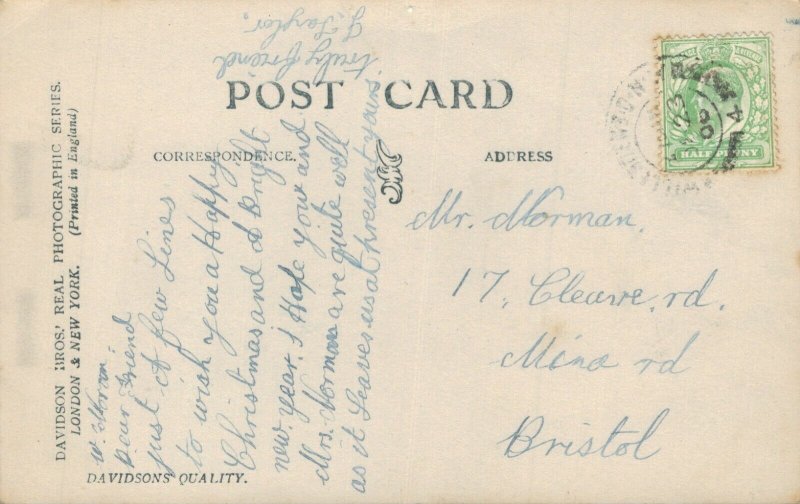 DAVIDSON BROS.' REAL PHOTOGRAPHIC SERIES.
LONDON & NEW YORK. (Printed in England)
POST CARD
CORRESPONDENCE.
ADDRESS
W.
Dear Friend
just A few Lines
to wish you a Happy
Christmas and A Bright
new year. I Hope your and
Mrs. Norman are quite well
as it Leaves us at present yours
truly freind
Taylor.
Mr. Norman.
17, Cleave rd.
Mina rd
Bristol
HALFPENNY
DE 23
DAVIDSONS QUALITY.